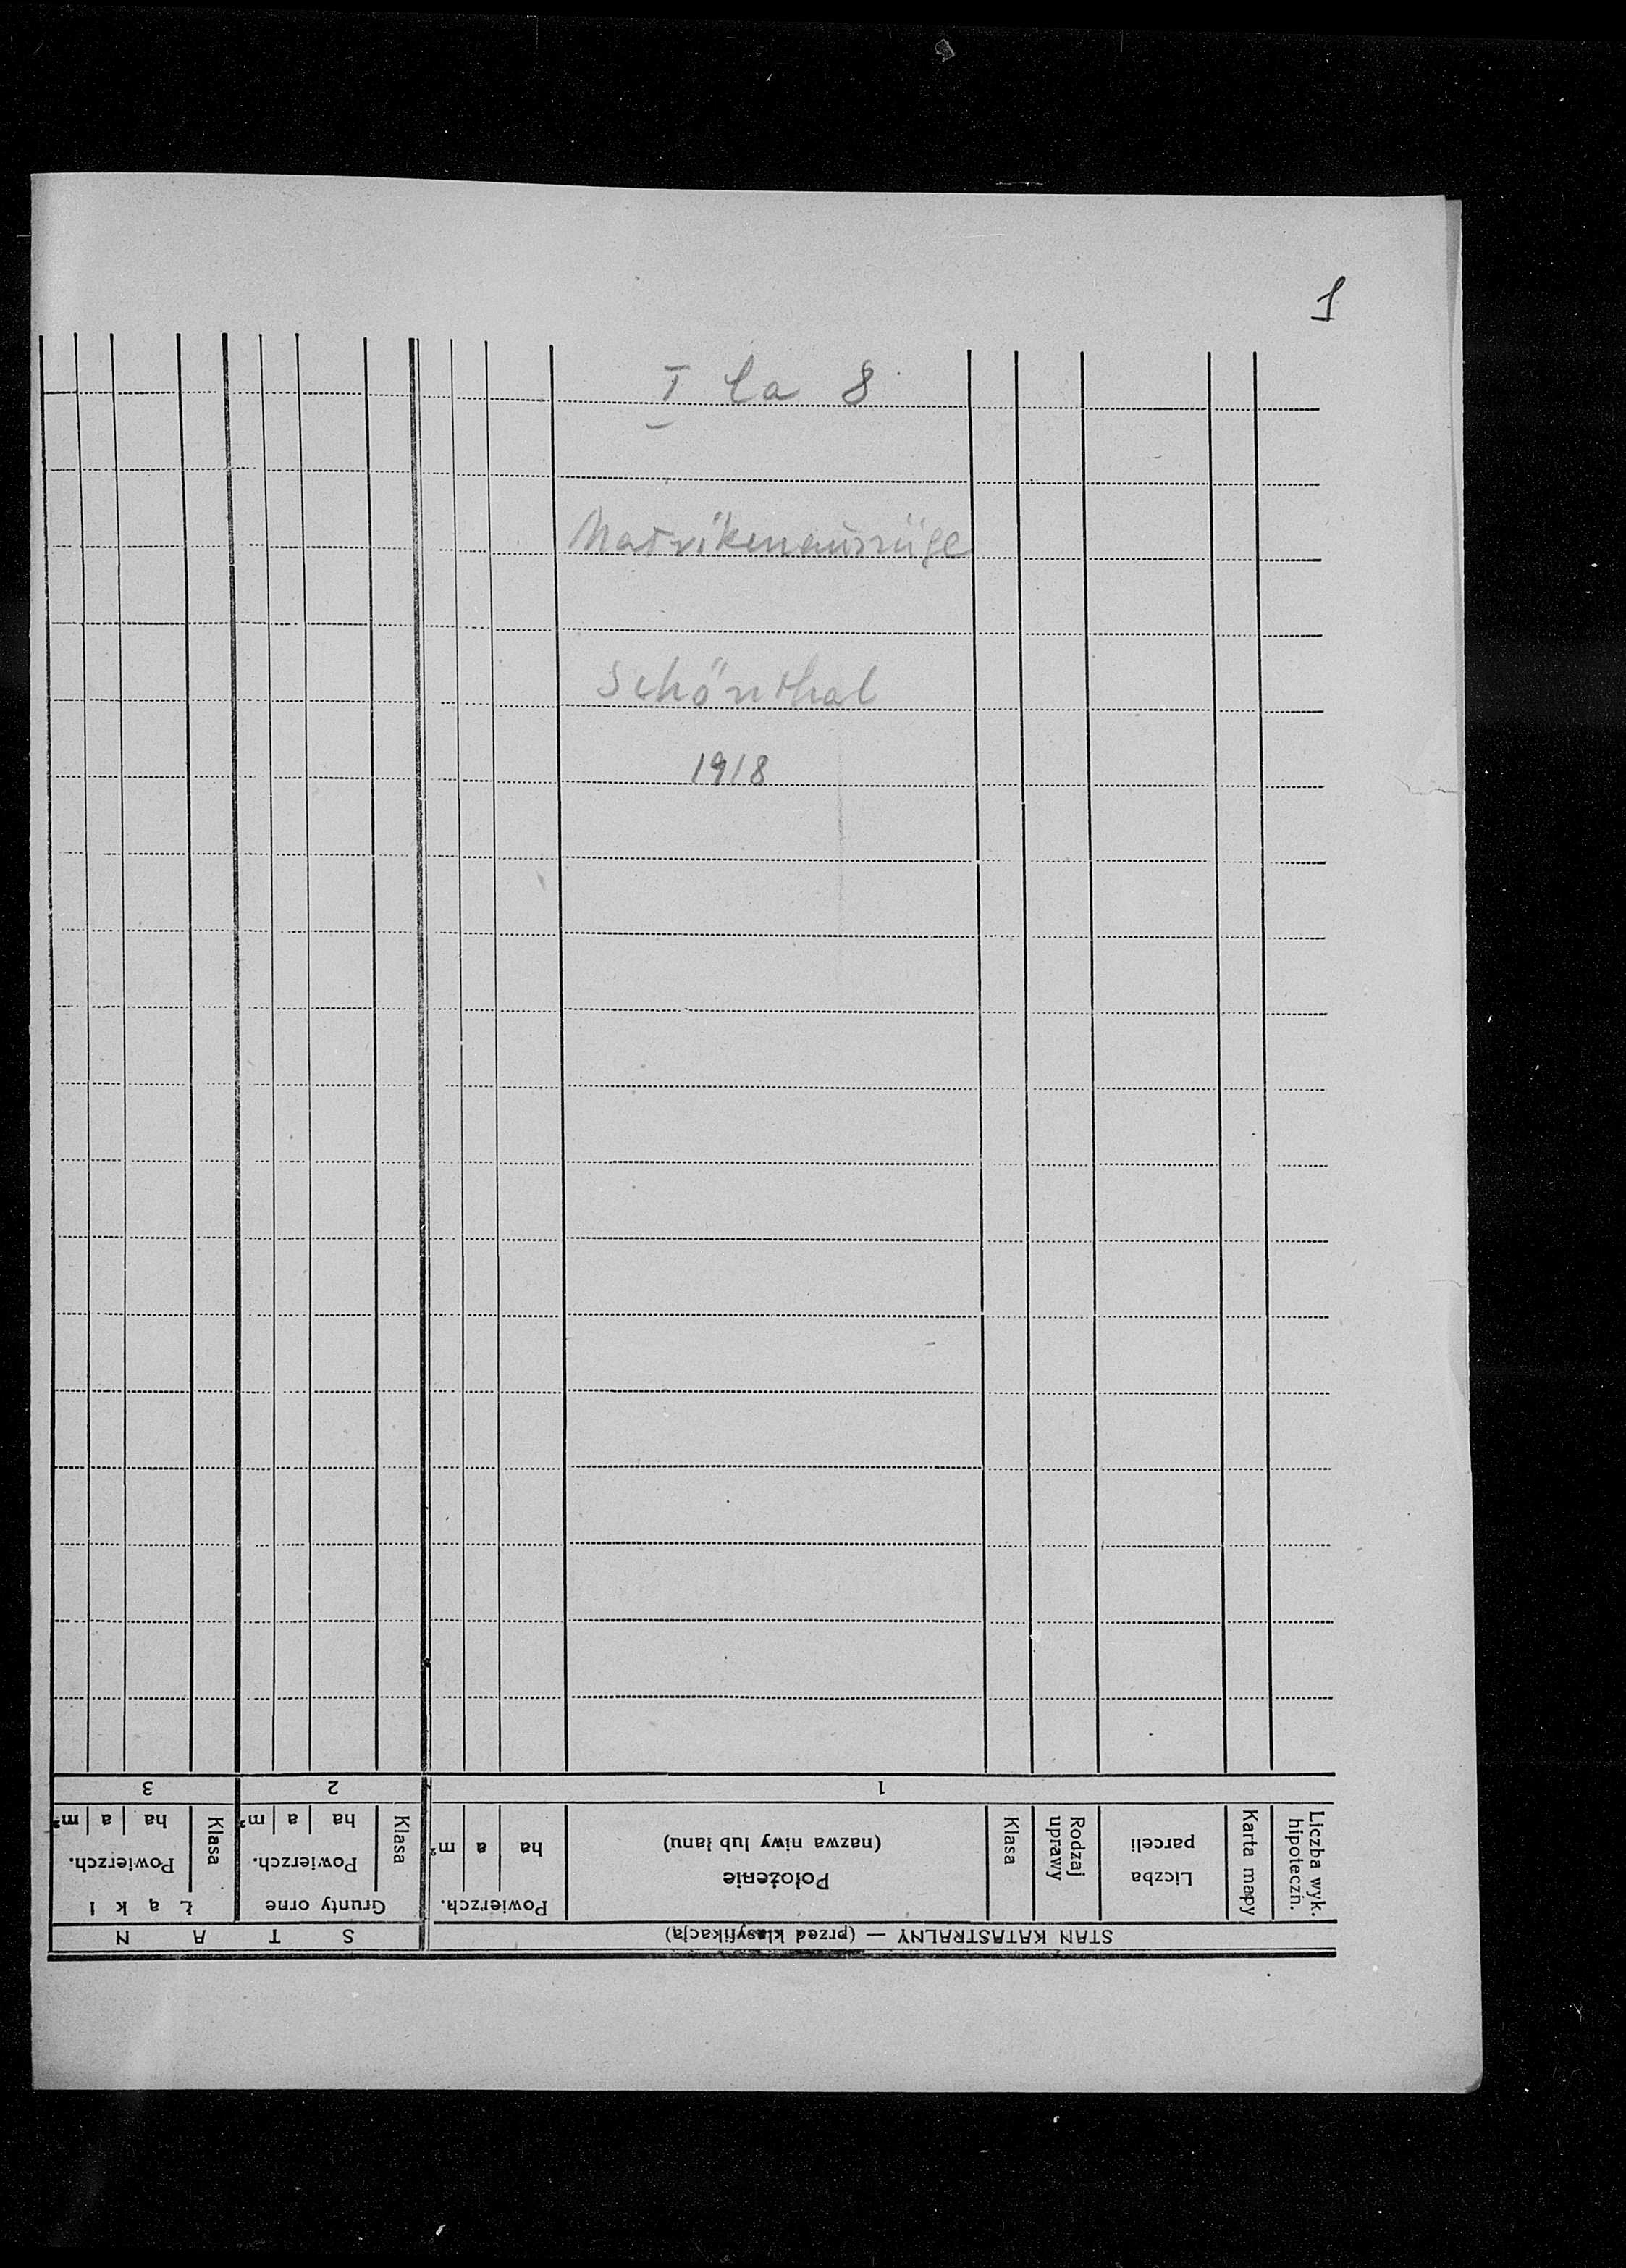 1
I la 8
Matrikenauszüge
Schönthal
1918
STAN KATASTRALNY — (przed klasyfikacją)
S T A N
Liczba wyk. hipoteczn.
Karta mapy
Liczba parceli
Rodzaj uprawy
Klasa
Położenie
(nazwa niwy lub łanu)
Powierzch.
ha a m²
Grunty orne
Klasa
Powierzch.
ha a m²
Łąki
Klasa
Powierzch.
ha a m²
1 2 3